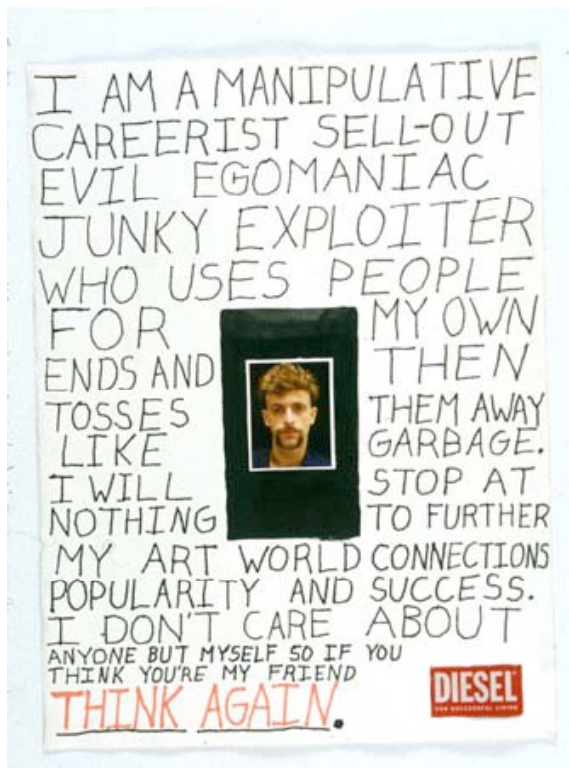 I AM A MANIPULATIVE
CAREERIST SELL-OUT
EVIL EGOMANIAC
JUNKY EXPLOITER
WHO USES PEOPLE
FOR MY OWN
ENDS AND THEN
TOSSES THEM AWAY
LIKE GARBAGE.
I WILL STOP AT
NOTHING TO FURTHER
MY ART WORLD CONNECTIONS
POPULARITY AND SUCCESS.
I DON'T CARE ABOUT
ANYONE BUT MYSELF SO IF YOU
THINK YOU'RE MY FRIEND
THINK AGAIN.
DIESEL
FOR SUCCESSFUL LIVING